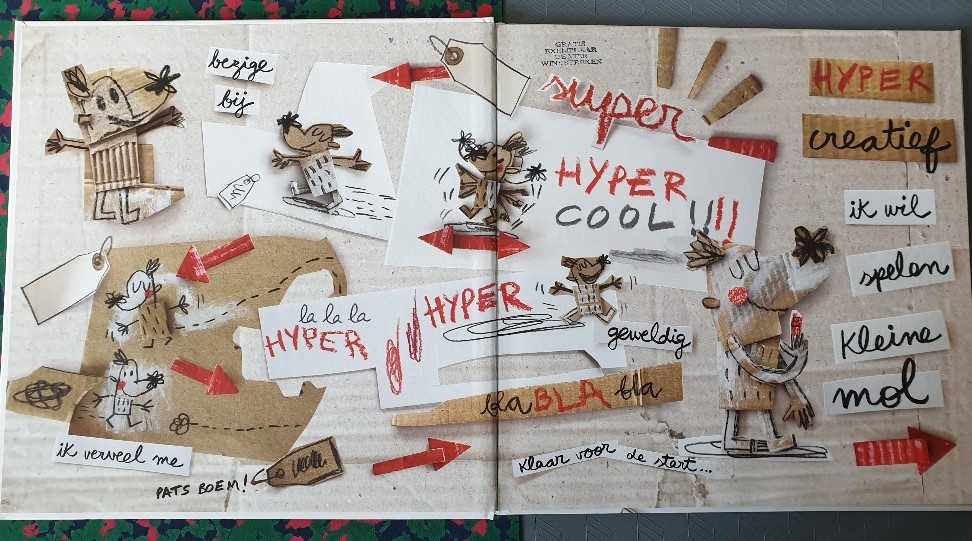 bezige
bij
GRATIS
EXEMPLAAR
super
HYPER
COOL!!!!
la la la
HYPER
HYPER
geweldig
bla BLA bla
ik verveel me
PATS BOEM!
klaar voor de start...
HYPER
creatief
ik wil
spelen
kleine
mol